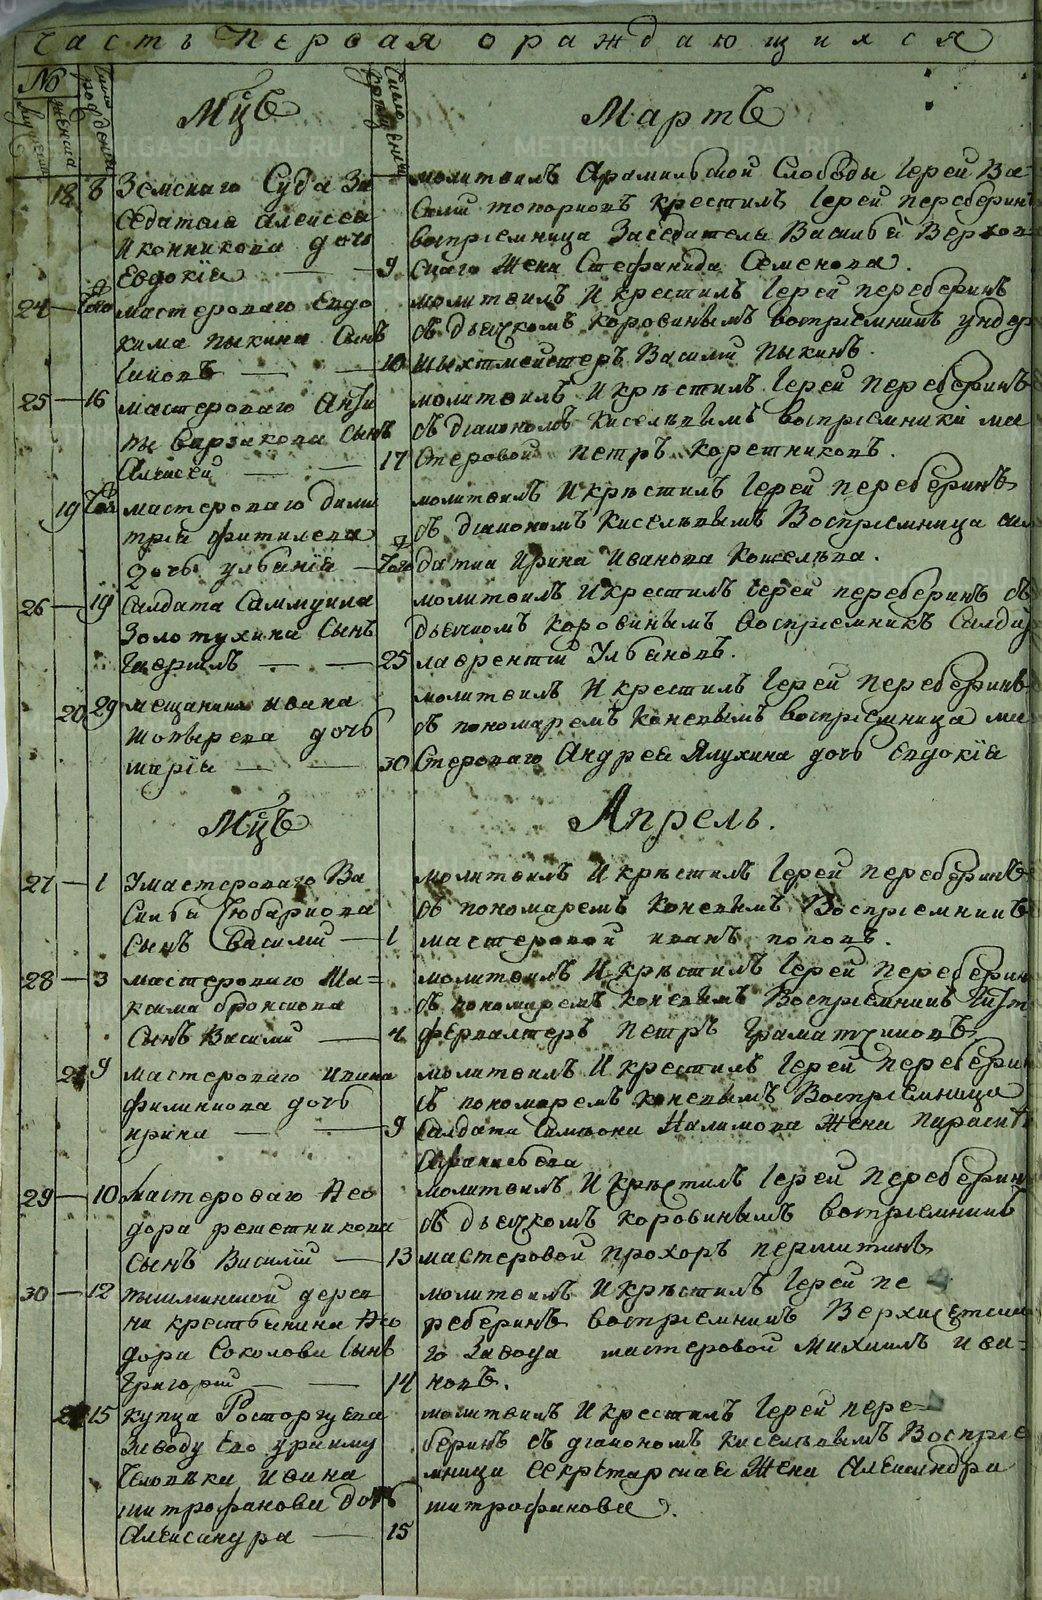 Часть первая о раждающихся
№
Мцъ
Мартъ
18 8 Земскаго Суда За
седателя Алексея
Иконникова дочь
Евдокiя — 9
молитвилъ Арамильской Слободы Iерей Ва
силий топорковъ крестилъ Iерей переберинъ
воспрiемница Заседателя Василья Верхов
скаго Жена Стефанида Семенова.
24 — мастероваго Евдо
кима пыкина Сынъ
10
молитвилъ И крестилъ Iерей переберинъ
съ дьячкомъ коровинымъ воспрiемникъ ундер
шыхтмейстеръ Василий пыкинъ.
25 — 16 мастероваго
сынъ
Алексей — 17
молитвилъ И крѣстилъ Iерей переберинъ
съ дiакономъ киселевымъ воспрiемникъ ма
стеровой петръ коретниковъ.
19 мастероваго дими
трiя фитилева
дочь улья́нiя —
молитвилъ И крѣстилъ Iерей переберинъ
съ дiакономъ киселевымъ Воспрiемница сал
датка Ирина Иванова Кошелѣва.
26 — 19 Салдата Саммуила
Золотухина Сынъ
Гаврiилъ — 25
молитвилъ И крестилъ Iерей переберинъ съ
дьячкомъ коровинымъ воспрiемникъ Салдат
лаврентiй Ульяновъ.
20 29 мещанина ивана
дочь
марiя — 30
молитвилъ И крестилъ Iерей переберинъ
съ пономаремъ коневымъ воспрiемница ма
стероваго Андрея Ялухина дочь евдокiя
Мцъ
Апрель.
27 — 1 Умастероваго Ва
силья
сынъ Василий — 1
молитвилъ И крѣстилъ Iерей переберинъ
съ пономаремъ коневымъ Воспрiемникъ
мастеровой иванъ поповъ.
28 — 3 мастероваго Ма-
ксима бронскова
Сынъ Василий — 4
молитвилъ И крѣстилъ Iерей переберин
съ пономаремъ коневымъ Воспрiемникъ
фервалтеръ петръ Граматчиковъ
21 9 мастероваго ивана
филиппова дочь
ирина — 9
молитвилъ И крестилъ Iерей переберин
съ пономаремъ коневымъ Воспрiемница
салдата Симеона Налимова Жена параске
Афанасьева
29 — 10 мастероваго Ѳео
дора решетникова
сынъ Василий — 13
молитвилъ И крѣстилъ Iерей переберин
съ дьячкомъ коровинымъ воспрiемникъ
мастеровой прохоръ пермитинъ
30 — 12 пышминской дерев
ни крестьянина Ѳео
дора Соколова Сынъ
Григорий — 14
молитвилъ И крѣстилъ Iерей пе
реберинъ воспрiемникъ Верхисетска
го Завода мастеровой Михаилъ ива-
новъ.
15 купца Росторгуева
Заводу
человѣка ивана
митрофанова дочь
Александра — 15
молитвилъ И крестилъ Iерей пере-
беринъ съ дiакономъ киселевымъ Воспрiе
мница секрѣтарская Жена Александра
митрофанова.
METRIKI.GASO-URAL.RU